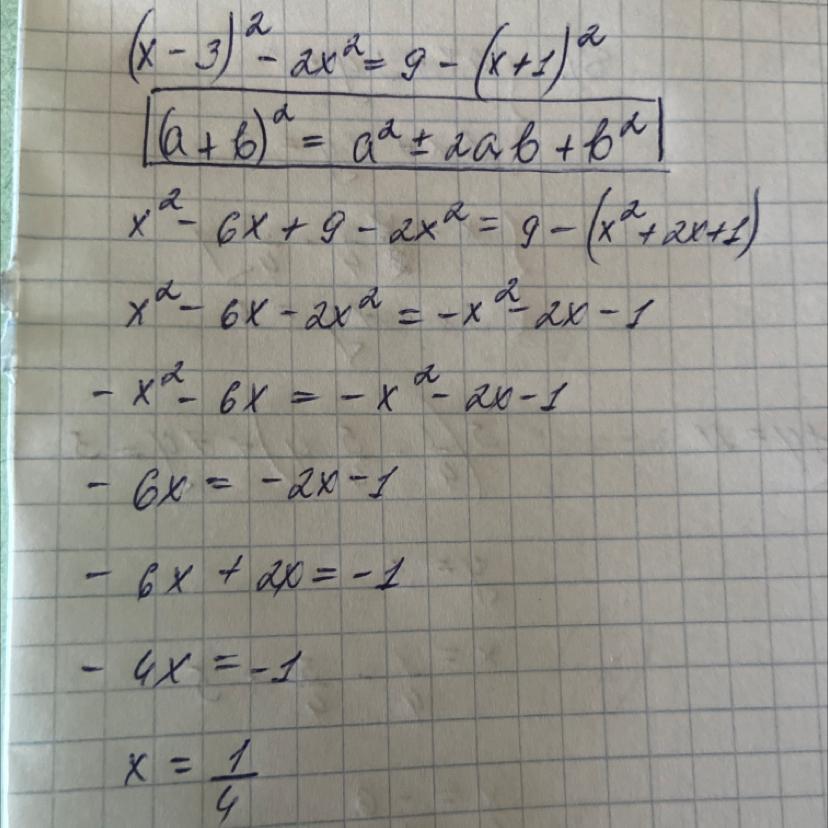 (x - 3)² - 2x² = 9 - (x+1)²
(a + b)² = a² ± 2ab + b²
x² - 6x + 9 - 2x² = 9 - (x² + 2x+1)
x² - 6x - 2x² = -x² - 2x - 1
- x² - 6x = - x² - 2x - 1
- 6x = - 2x - 1
- 6x + 2x = - 1
- 4x = - 1
x = 1/4